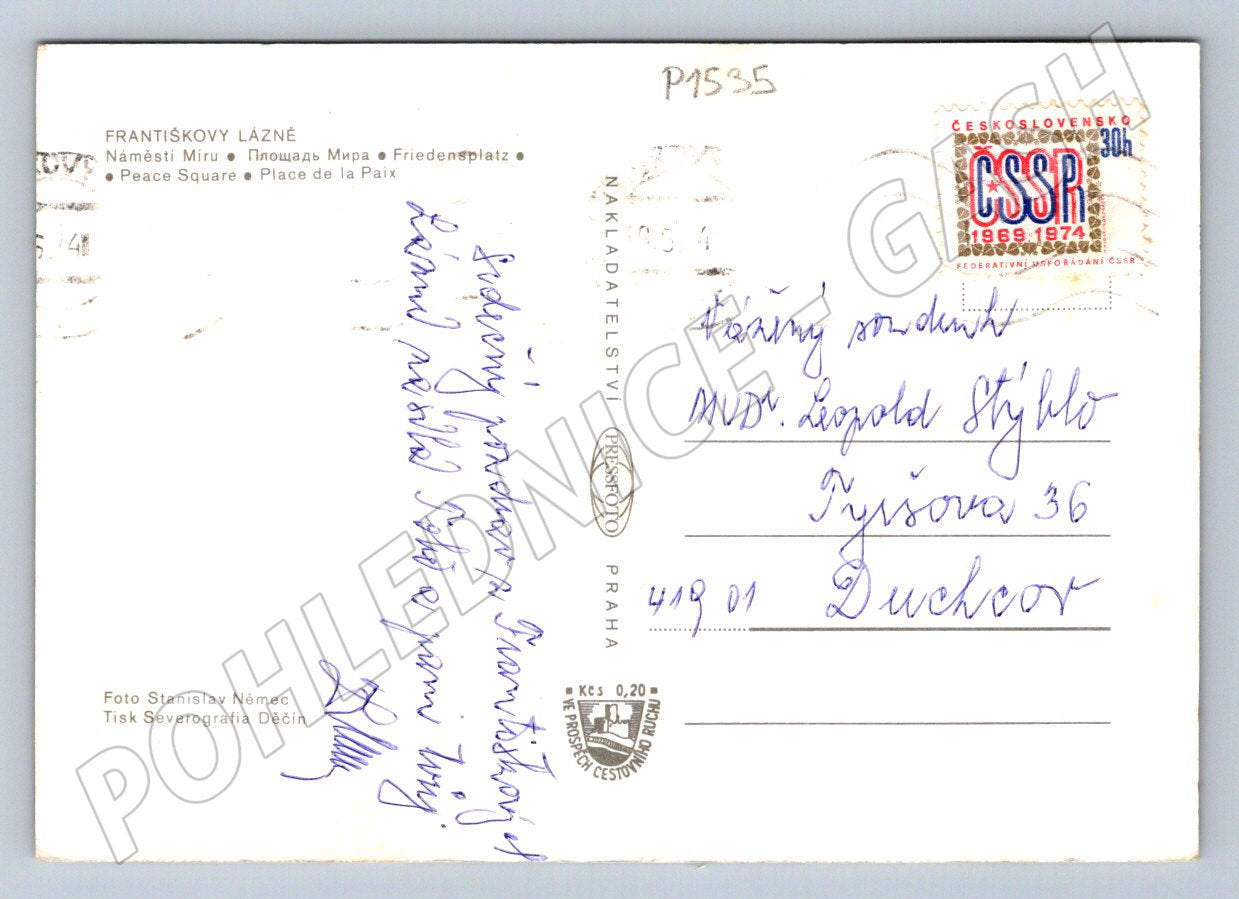 P1535
FRANTIŠKOVY LÁZNĚ
Náměstí Míru ● Площадь Мира ● Friedensplatz ●
● Peace Square ● Place de la Paix
ČESKOSLOVENSKO
30h
ČSSR
1969 1974
FEDERATIVNÍ USPOŘÁDÁNÍ ČSSR
Srdečný pozdrav z Františkových
Lázní posílá Tobě
NAKLADATELSTVÍ PRESSFOTO PRAHA
Vážený soudruh
MVDr. Leopold Stýblo
Tyršova 36
419 01 Duchcov
Foto Stanislav Němec
Tisk Severografia Děčín
Kčs 0,20
VE PROSPĚCH CESTOVNÍHO RUCHU
POHLEDNICE - GASH